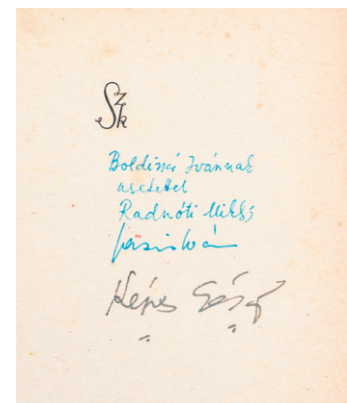 SzK
Boldizsár Ivánnak
szeretettel
Radnóti Miklós
Képes Géza